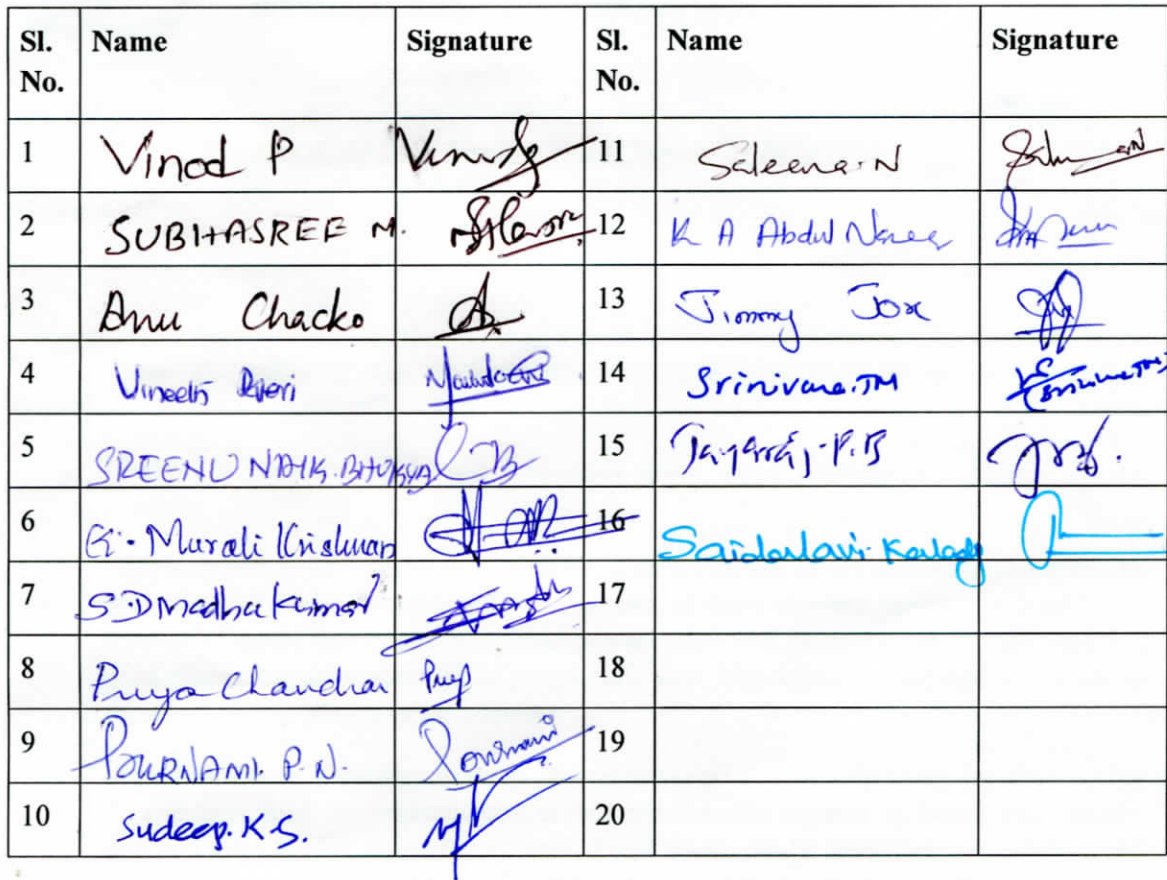 Sl. No. Name Signature Sl. No. Name Signature
1 Vinod P 11 Saleena N
2 SUBHASREE M. 12 K A Abdul Nazeer
3 Anu Chacko 13 Jimmy Jose
4 Vineeth 14 Srinivasa.TM
5 SREENU NAIK. BHUKYA 15 Jayaraj.P.B
6 G. Murali Krishnan 16 Saidalavi
7 S.D Madhu Kumar 17
8 Priya Chandran 18
9 POURNAMI. P.N. Pournami 19
10 Sudeep.K.S. 20